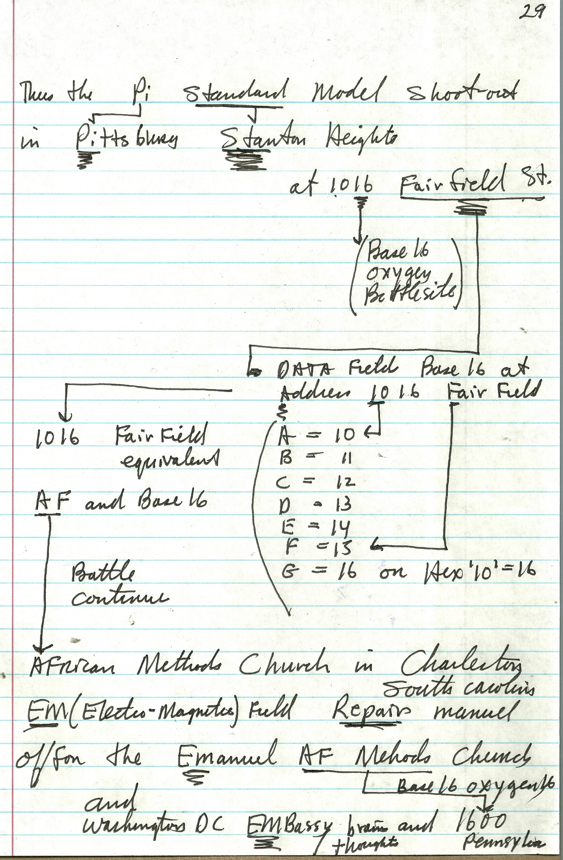 29
Thus the Pi Standard Model Shoot-out
in Pittsburg Stanton Heights
at 1016 Fairfield St.
(Base 16
oxygen
Battlesite)
DATA Field Base 16 at
Address 1016 Fair Field
1016 Fair Field
equivalent
AF and Base 16
A = 10
B = 11
C = 12
D = 13
E = 14
F = 15
G = 16 on Hex '10' = 16
Battle
continue
AFrican Methods Church in Charleston
South Carolina
EM (Electro-Magnetic) Field Repairs manuel
of/for the Emanuel AF Mehods Church
Base 16 oxygen 16
and
Washington DC EMBassy brains and 1600
/ thoughts Pennsylvia